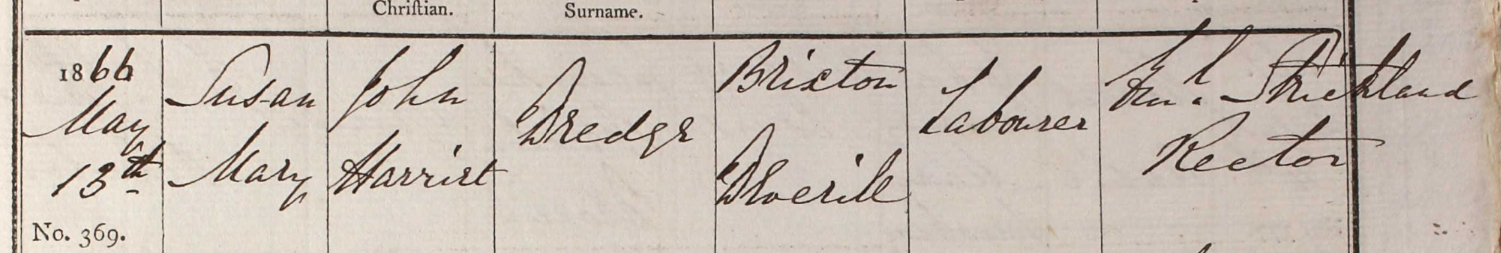 Christian.
Surname.
1866
May
13th
No. 369.
Susan
Mary
John
Harriet
Dredge
Brixton
Dverill
Labourer
Strickland
Rector